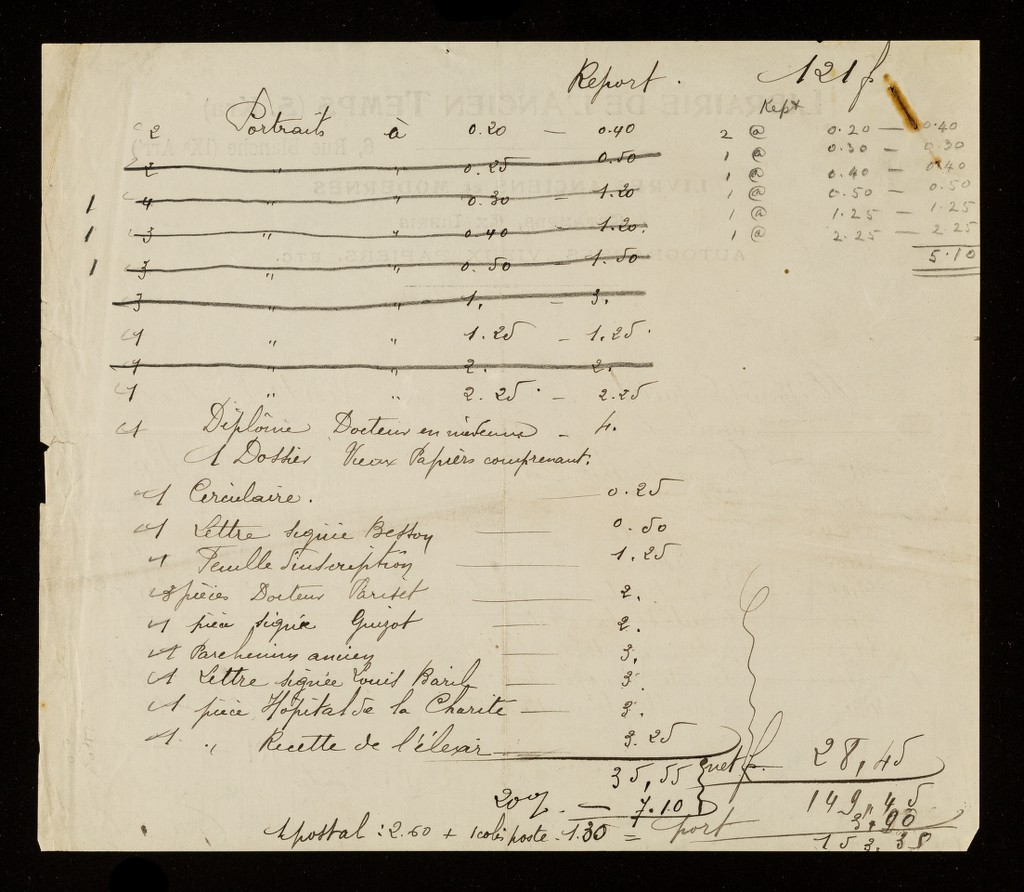 Report. 121 f
Kept
2 Portraits à 0.20 — 0.40 2 @ 0.20 — 0.40
2 " " 0.25 0.50 1 @ 0.30 — 0.30
1 4 " " 0.30 — 1.20 1 @ 0.40 — 0.40
1 3 " " 0.40 — 1.20. 1 @ 0.50 — 0.50
1 3 " " 0.50 — 1.50 1 @ 1.25 — 1.25
1 @ 2.25 — 2.25
5.10
3 " " 1. — 3.
1 " " 1.25 — 1.25.
1 " " 2. 2.
1 " " 2.25. — 2.25
1 Diplôme Docteur en médecine — 4.
1 Dossier Vieux Papiers comprenant.
1 Circulaire. — 0.25
1 Lettre signée Besson — 0.50
1 Feuille d'inscription — 1.25
3 pièces Docteur Pariset — 2.
1 pièce signée Guizot — 2.
1 Parchemins ancien — 3.
1 Lettre signée Louis — 3.
1 pièce Hôpital de la Charité — 3.
1 " Recette de l'élexir — 3.25
35,55 net f. 28,45
20% — 7.10 149,45
1 postal: 2.60 + 1 colis poste - 1.30 = port 3,90
153.35
LIBRAIRIE DE L'ANCIEN TEMPS
6, Rue Blanche (IXe Arrt)
LIVRES ANCIENS ET MODERNES
AUTOGRAPHES, VIEUX PAPIERS, ETC.